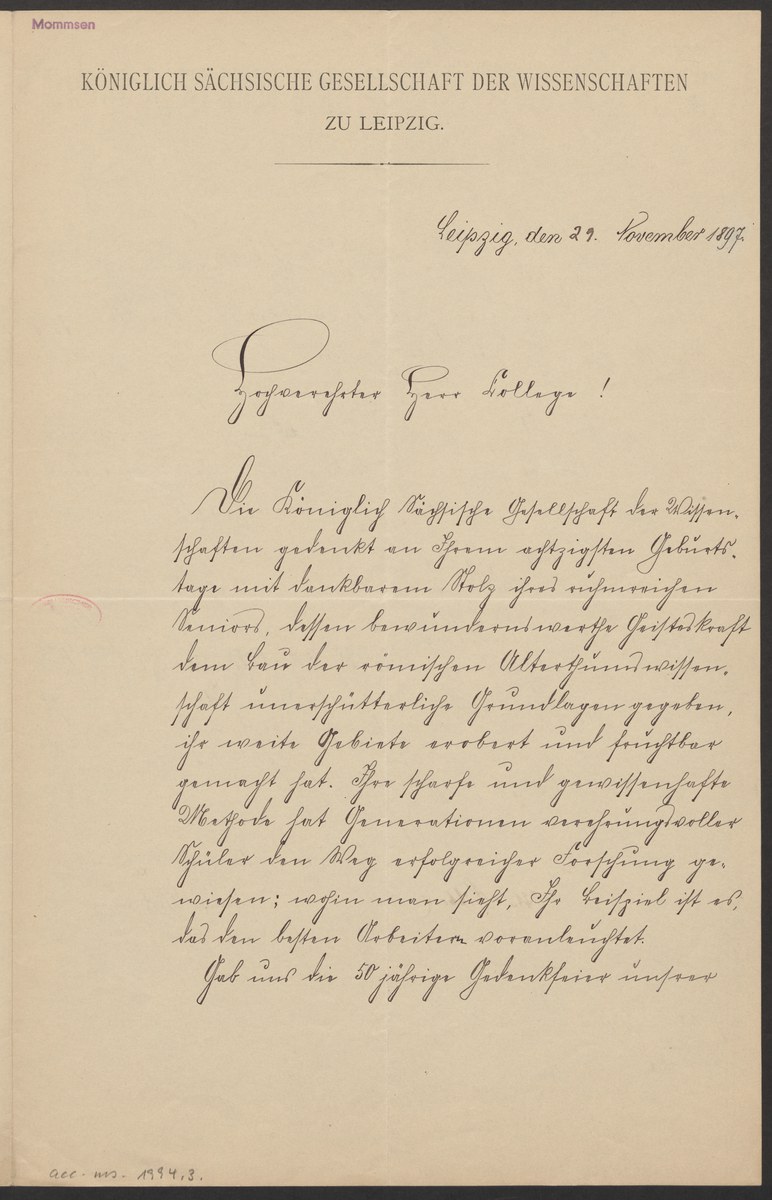 Mommsen
KÖNIGLICH SÄCHSISCHE GESELLSCHAFT DER WISSENSCHAFTEN
ZU LEIPZIG.
Leipzig, den 29. November 1897.
Hochverehrter Herr College!
Die Königlich Sächsische Gesellschaft der Wissen-
schaften gedenkt an Ihrem achtzigsten Geburts-
tage mit dankbarem Stolz ihres ruhmreichen
Seniors, dessen bewundernswerthe Geisteskraft
dem Bau der römischen Alterthumswissen-
schaft unerschütterliche Grundlagen gegeben,
ihr weite Gebiete erobert und fruchtbar
gemacht hat. Ihre scharfe und gewissenhafte
Methode hat Generationen verehrungsvoller
Schüler den Weg erfolgreicher Forschung ge-
wiesen; wohin man sieht, Ihr Beispiel ist es,
das den besten Arbeitern voranleuchtet.
Gab uns die 50 jährige Gedenkfeier unsrer
acc. ms. 1994.3.